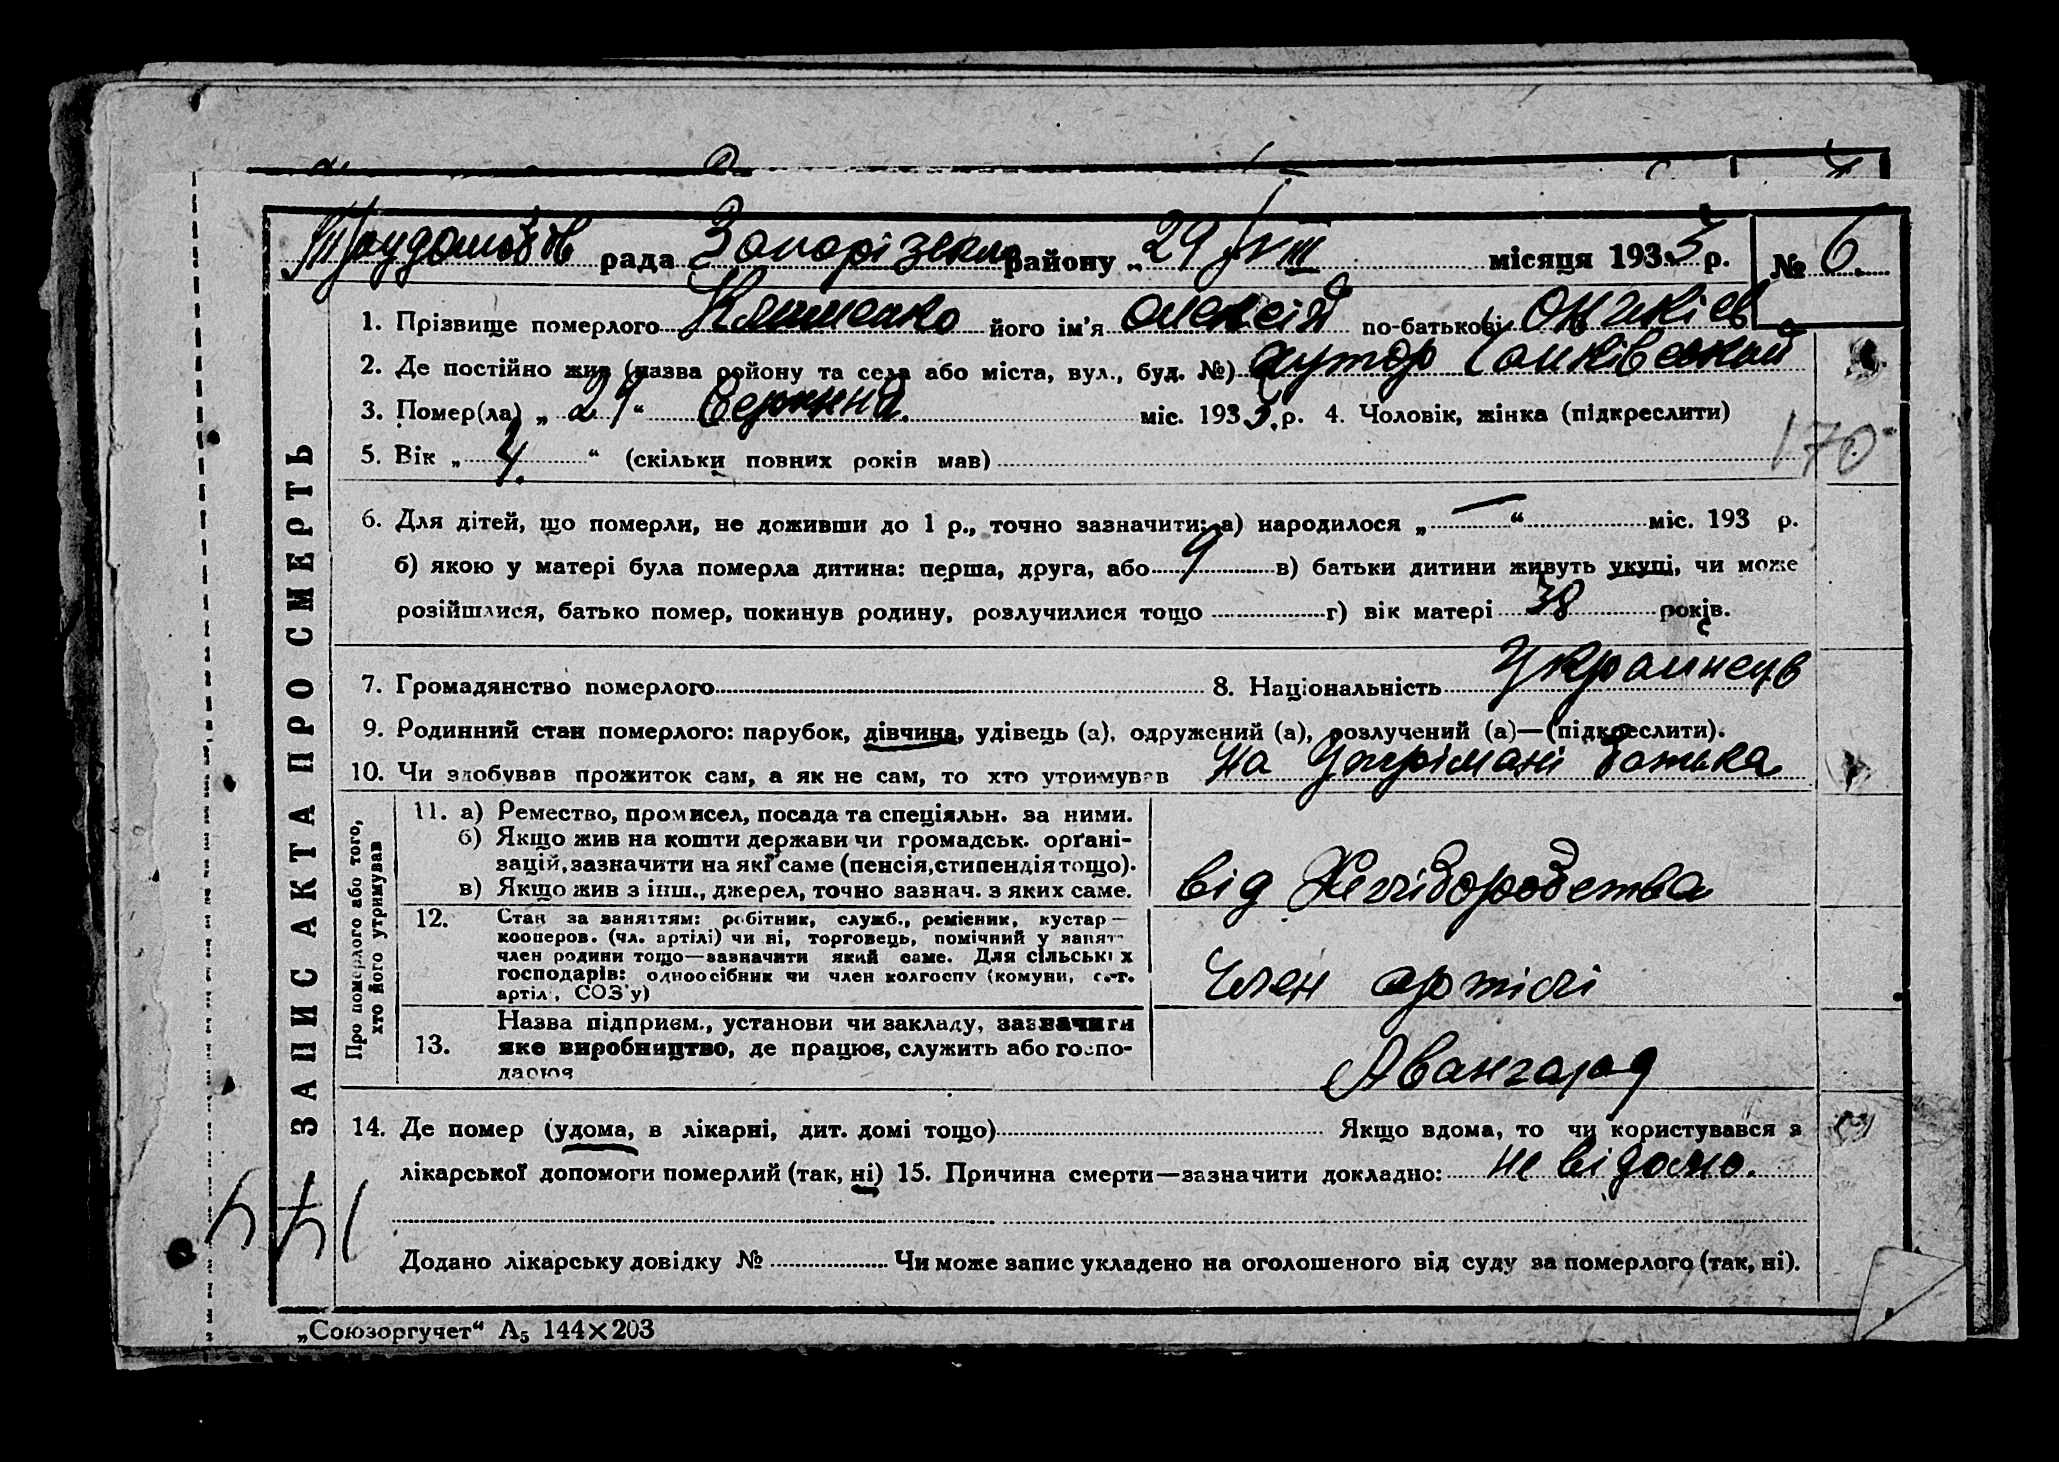 рада Запорізьк району „29 VIII місяця 1933 р. № 6.
1. Прізвище померлого Клименко його ім'я Олексій по-батькові
2. Де постійно жив (назва району та села або міста, вул., буд. №) хутор
3. Помер(ла) „ 27 “ Серпня. міс. 1933 р. 4. Чоловік, жінка (підкреслити)
170
5. Вік „ 4. “ (скільки повних років мав)
6. Для дітей, що померли, не доживши до 1 р., точно зазначити: а) народилося „ — “ міс. 193 р.
б) якою у матері була померла дитина: перша, друга, або 9 в) батьки дитини живуть укупі, чи може
розійшлися, батько помер, покинув родину, розлучилися тощо г) вік матері 38 років.
7. Громадянство померлого 8. Національність Украинець
9. Родинний стан померлого: парубок, дівчина, удівець (а), одружений (а), розлучений (а)—(підкреслити).
10. Чи здобував прожиток сам, а як не сам, то хто утримував На Утрімані батька
ЗАПИС АКТА ПРО СМЕРТЬ
Про померлого або того,
хто його утримував
11. а) Ремество, промисел, посада та спеціяльн. за ними.
б) Якщо жив на кошти держави чи громадськ. орґані-
зацій, зазначити на які саме (пенсія, стипендія тощо).
в) Якщо жив з інш., джерел, точно зазнач. з яких саме.
від Хліборобства
12. Стан за заняттям: робітник, служб., ремісник, кустар —
кооперов. (чл. артілі) чи ні, торговець, помічний у занят-
член родини тощо—зазначити який саме. Для сільських
господарів: одноосібник чи член колгоспу (комуни, с.-г.
артіл., СОЗ'у)
Член артілі
13. Назва підприєм., установи чи закладу, зазначити
яке виробництво, де працює, служить або госпо-
дарює
Авангард
14. Де помер (удома, в лікарні, дит. домі тощо) Якщо вдома, то чи користувався з
лікарської допомоги померлий (так, ні) 15. Причина смерти—зазначити докладно: не відомо.
Додано лікарську довідку № Чи може запис укладено на оголошеного від суду за померлого (так, ні).
„Союзоргучет“ А5 144×203